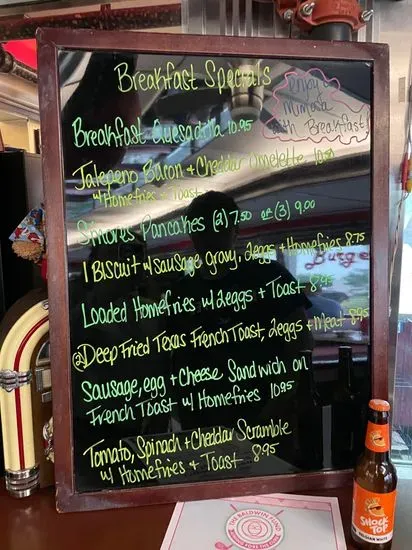 Breakfast Specials
enjoy a
Mimosa
with Breakfast!
Breakfast Quesadilla 10.95
Jalepeno Bacon + Cheddar Omelette 10.50
w/ Homefries + Toast
S'mores Pancakes (2) 7.50 or (3) 9.00
1 Biscuit w/ sausage gravy, 2eggs + Homefries 8.75
Burger
Loaded Homefries w/ 2eggs + Toast 8.95
(2) Deep Fried Texas French Toast, 2eggs + Meat 8.95
Sausage, egg + Cheese Sandwich on
French Toast w/ Homefries 10.95
Tomato, Spinach + Cheddar Scramble
w/ Homefries + Toast 8.95
SHOCK
TOP
BELGIAN WHITE
THE BALDWIN